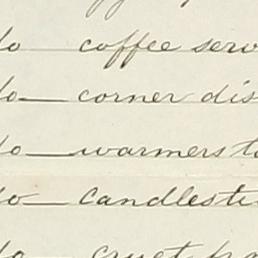 do coffee serv
do corner dis
do warmers to
do candlesti
do cruet fra